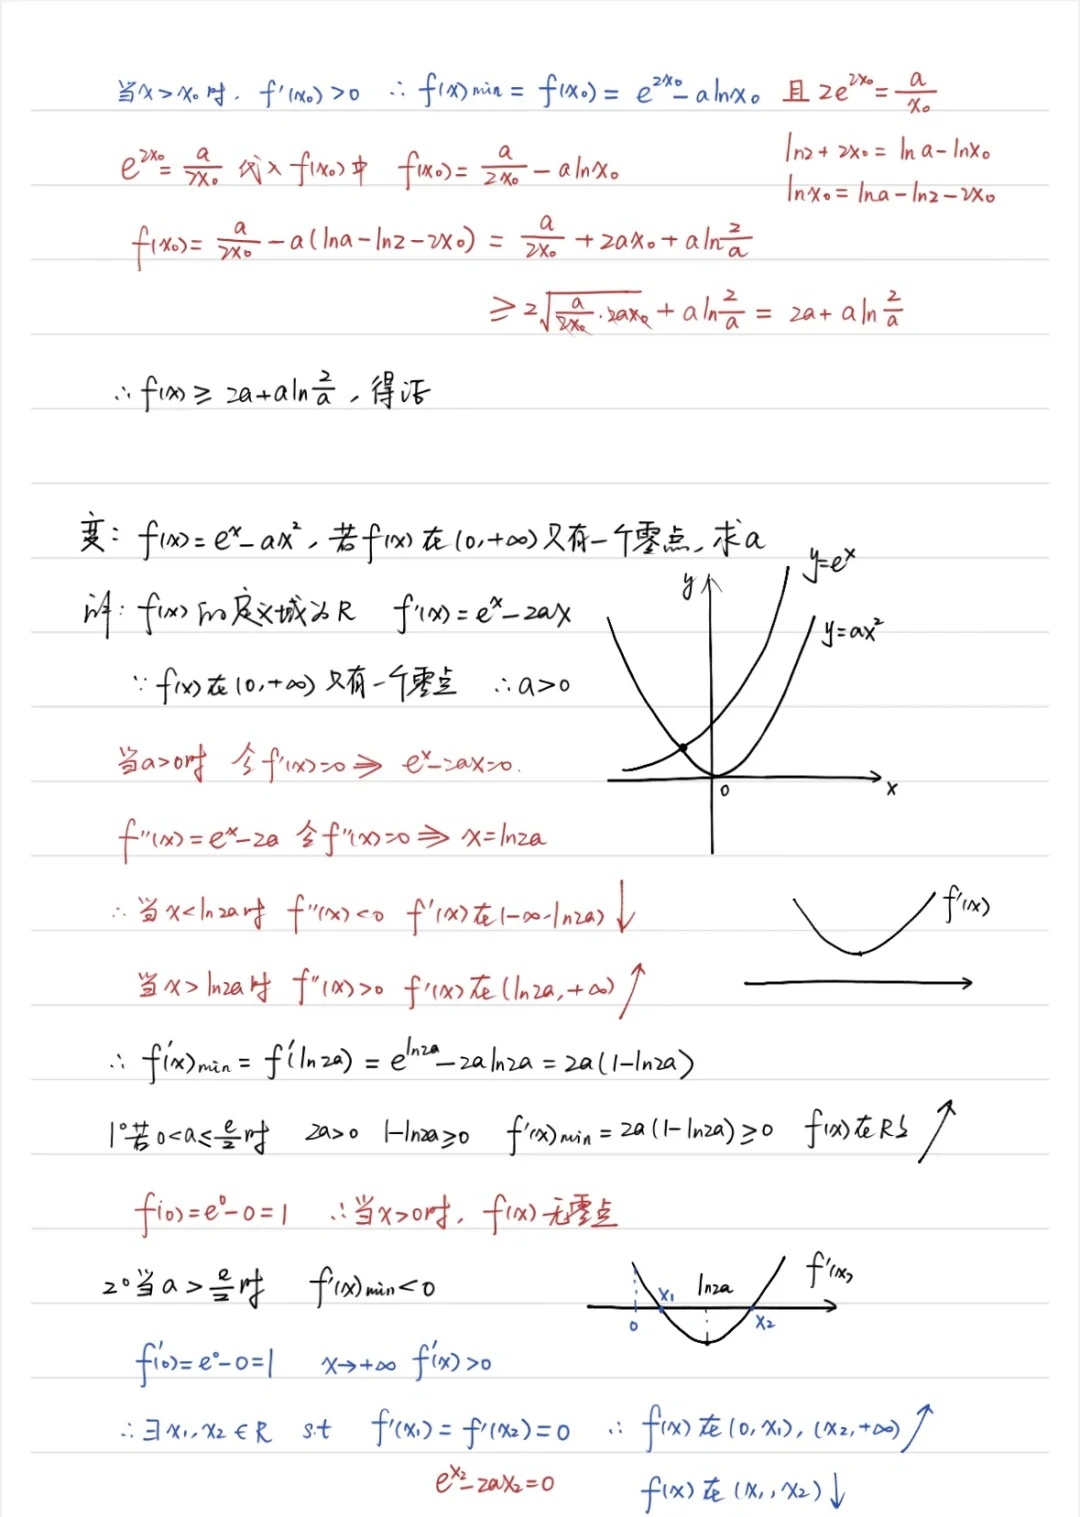 当x>x₀时, f'(x₀)>0 ∴ f(x)min = f(x₀) = e^{2x₀} - alnx₀ 且 2e^{2x₀} = a/x₀
e^{2x₀} = a/2x₀ 代入f(x₀)中 f(x₀) = a/2x₀ - alnx₀ ln2 + 2x₀ = lna - lnx₀
lnx₀ = lna - ln2 - 2x₀
f(x₀) = a/2x₀ - a(lna - ln2 - 2x₀) = a/2x₀ + 2ax₀ + aln2/a
≥ 2√(a/2x₀ · 2ax₀) + aln2/a = 2a + aln2/a
∴ f(x) ≥ 2a + aln2/a, 得证
变: f(x) = e^x - ax², 若f(x)在(0,+∞)只有一个零点, 求a
y=e^x
y
解: f(x)的定义域为R f'(x) = e^x - 2ax
y=ax²
∵ f(x)在(0,+∞)只有一个零点 ∴ a>0
当a>0时 令f'(x)=0 ⇒ e^x - 2ax = 0.
0 x
f''(x) = e^x - 2a 令f''(x)=0 ⇒ x=ln2a
∴ 当x<ln2a时 f''(x)<0 f'(x)在(-∞·ln2a)↓
f'(x)
当x>ln2a时 f''(x)>0 f'(x)在(ln2a,+∞)↗
∴ f'(x)min = f'(ln2a) = e^{ln2a} - 2aln2a = 2a(1-ln2a)
1° 若0<a≤e/2时 2a>0 1-ln2a≥0 f'(x)min = 2a(1-ln2a)≥0 f(x)在R上↗
f(0) = e⁰ - 0 = 1 ∴当x>0时, f(x)无零点
2° 当a>e/2时 f'(x)min<0
ln2a f'(x)
0 x₁ x₂
f'(0) = e⁰ - 0 = 1 x→+∞ f'(x)>0
∴ ∃x₁,x₂∈R s.t f'(x₁) = f'(x₂) = 0 ∴ f(x)在(0,x₁), (x₂,+∞)↗
e^{x₂} - 2ax₂ = 0 f(x)在(x₁,x₂)↓